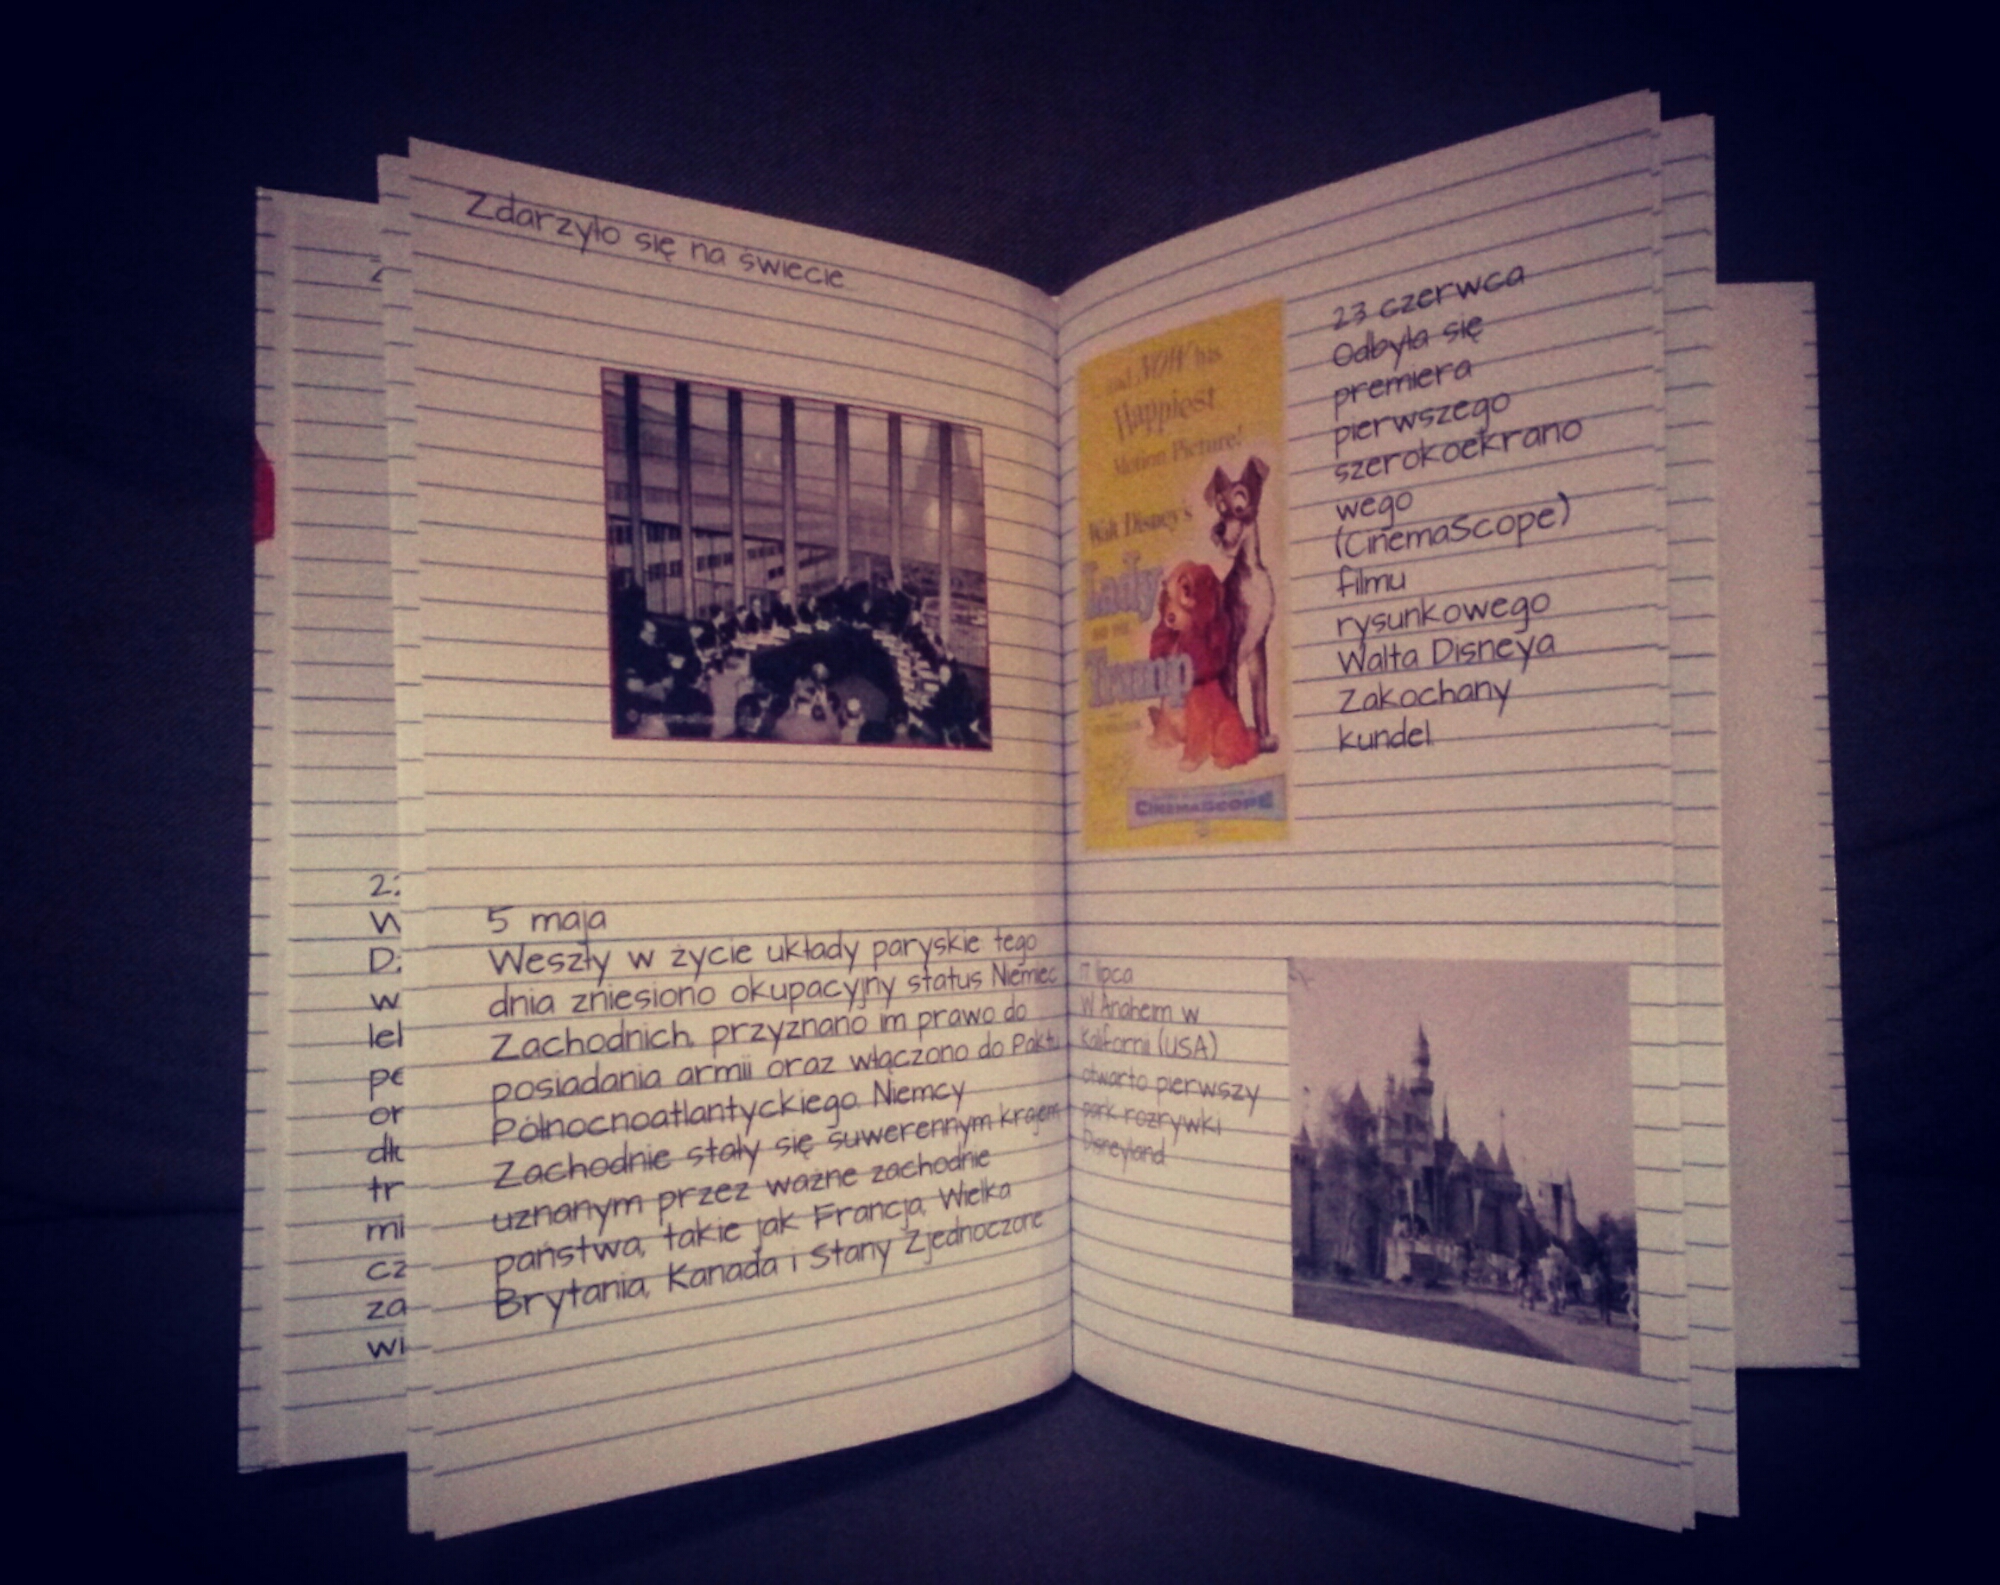 Zdarzyło się na świecie
5 maja
Weszły w życie układy paryskie tego
dnia zniesiono okupacyjny status Niemiec
Zachodnich, przyznano im prawo do
posiadania armii oraz włączono do Paktu
Północnoatlantyckiego. Niemcy
Zachodnie stały się suwerennym krajem
uznanym przez ważne zachodnie
państwa, takie jak Francja, Wielka
Brytania, Kanada i Stany Zjednoczone
and NOW his
Happiest
Motion Picture!
Walt Disney's
Lady
AND THE
Tramp
CINEMASCOPE
23 czerwca
Odbyła się
premiera
pierwszego
szerokoekrano
wego
(CinemaScope)
filmu
rysunkowego
Walta Disneya
Zakochany
kundel.
17 lipca
W Anaheim w
Kalifornii (USA)
otwarto pierwszy
park rozrywki
Disneyland
22
W
D
w
lel
pe
or
dł
tr
mi
cz
za
wi